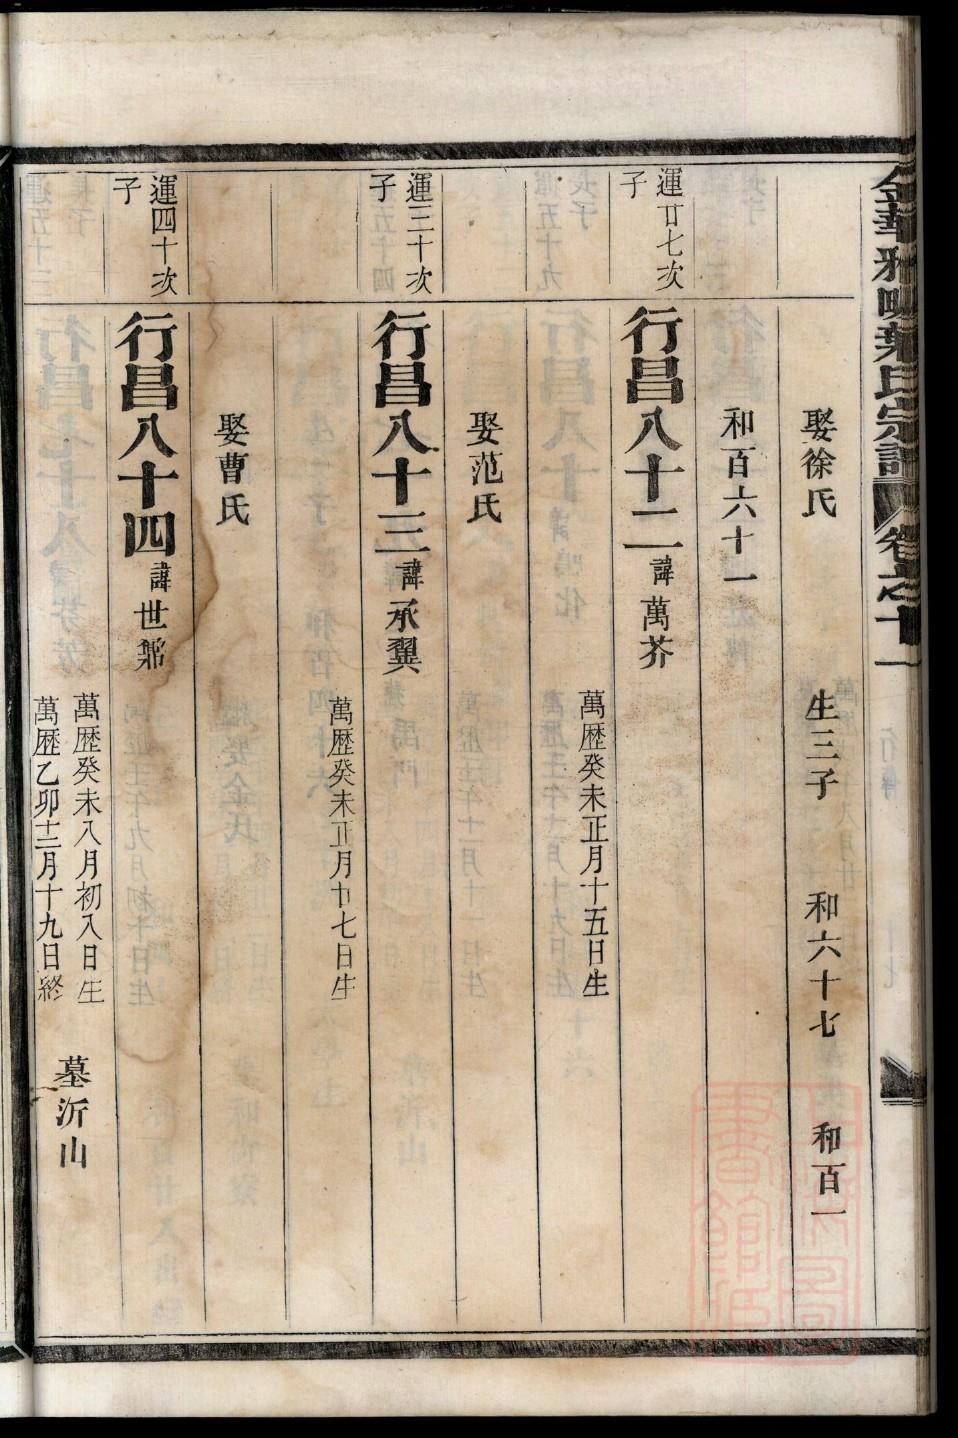 金華雅畈葉氏宗譜 卷之十一
娶徐氏 生三子 和六十七 和百一
和百六十一
運廿七次子
行昌八十二 諱萬芥
萬歷癸未正月十五日生
娶范氏
運三十次子
行昌八十三 諱承翼
萬歷癸未正月廿七日生
娶曹氏
運四十次子
行昌八十四 諱世
萬歷癸未八月初八日生
萬歷乙卯十二月十九日終
墓沂山